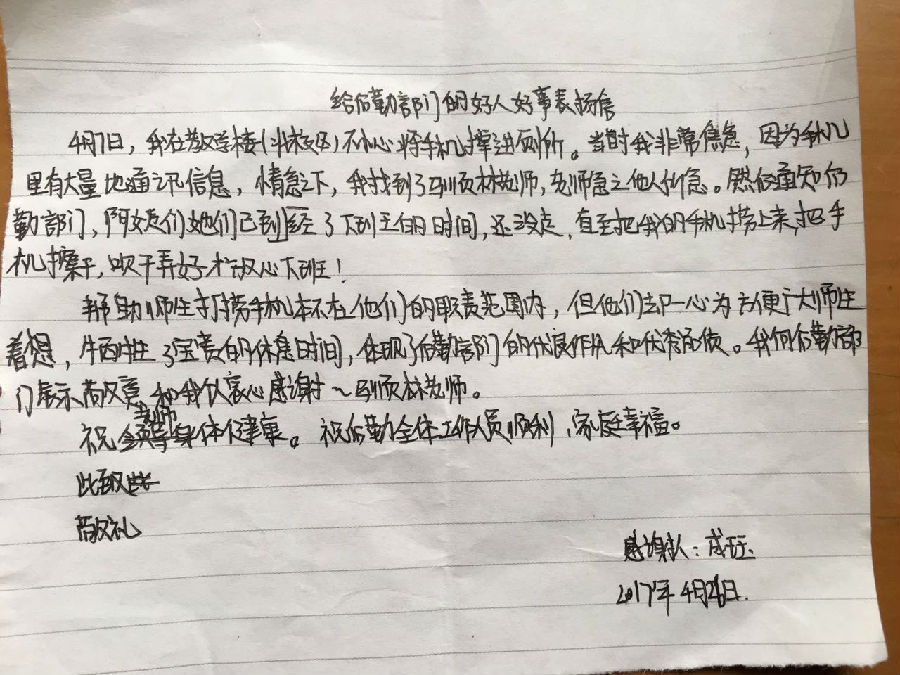 给后勤部门的好人好事表扬信
4月7日，我在教学楼(北校区)不小心将手机掉进厕所。当时我非常焦急，因为手机
里有大量地通讯信息，情急之下，我找到了马顺林老师，老师急之他人所急。然后通知后
勤部门，阿姨们她们已到经了下班的时间，还没走，直至把我的手机捞上来，把手
机擦干，吹干弄好才放心下班！
帮助师生打捞手机本不在他们的职责范围内，但他们却一心为方便广大师生
着想，牺牲了宝贵的休息时间，体现了后勤部门的优良作风和优秀品质。我向后勤部
门展示敬意和我以衷心感谢～马顺林老师。
祝老师身体健康。祝后勤全体工作人员顺利，家庭幸福。
此致
敬礼
感谢人：成
2017年4月26日.